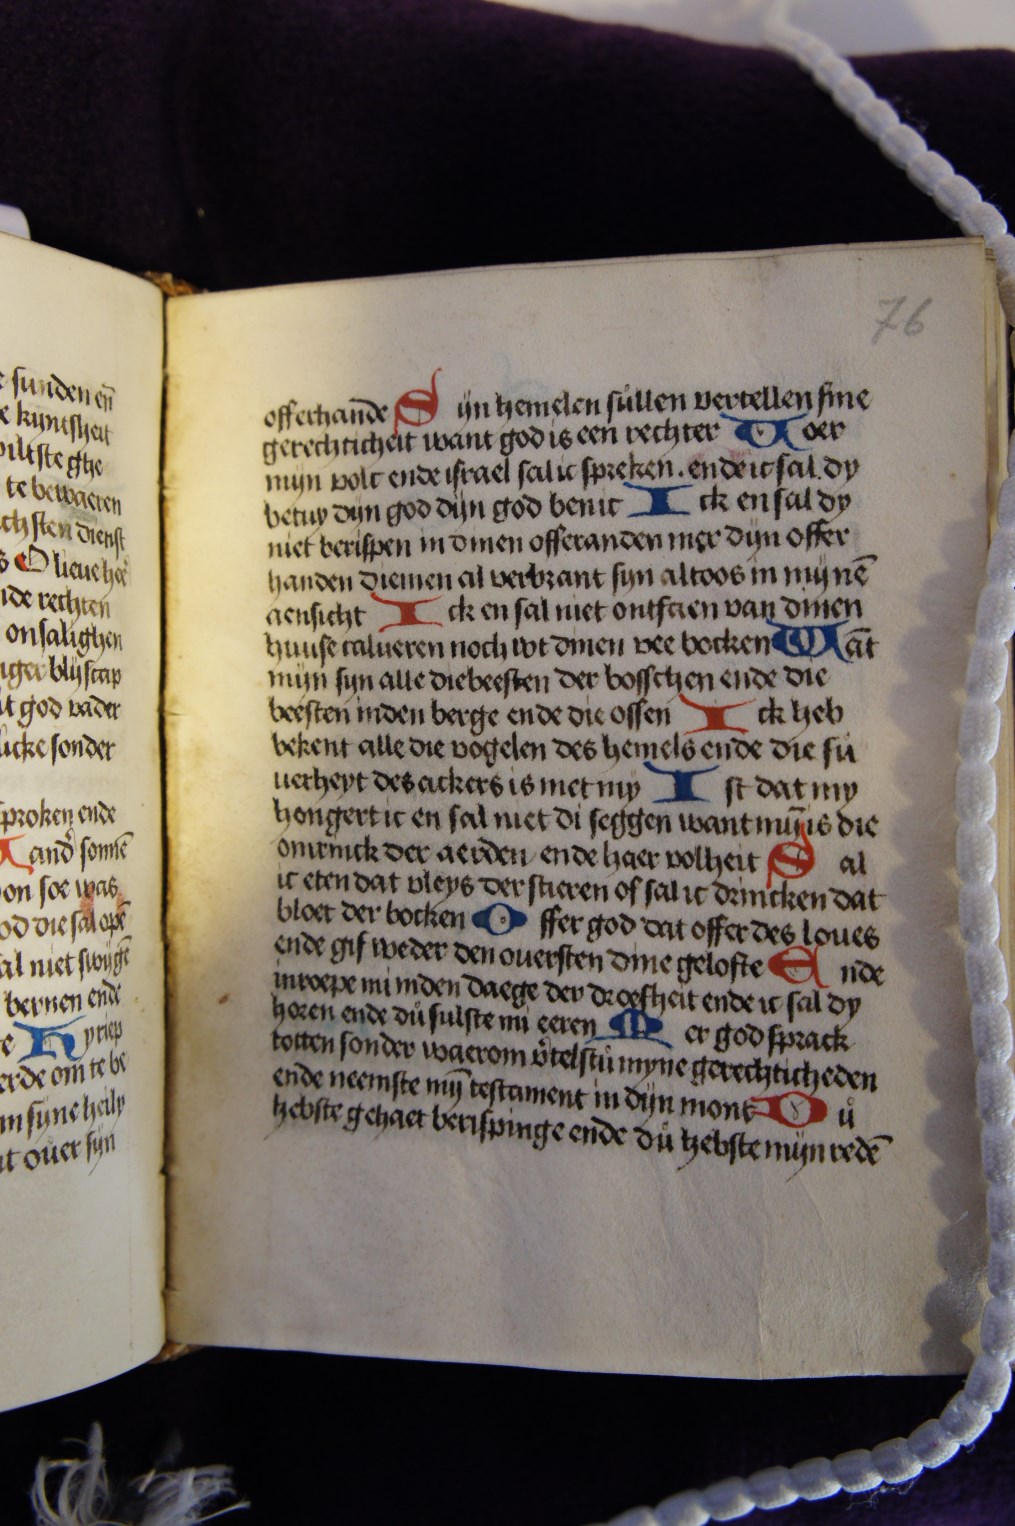 e sunden en̄
e kyntsheit
piltste ghe
te bewaeren
chsten dienst
s O lieue hee
nde rechten
onsalighen
iger blijscap
it god vader
licke sonder
sproken ende
and' sonnē
on soe was
od die sal opē
al niet swygē
bernen ende
e H yriep
erde om te be
in syne heily
it ouer syn
76
offerhande S ijn hemelen sůllen vertellen sine
gerechticheit want god is een rechter H oer
mijn volc ende israel sal ic spreken . ende ic sal dy
betuy dijn god dijn god ben ic I ck en sal dy
niet berispen in dinen offeranden mer dijn offer
handen die men al verbrant syn altoos in mijnē
aensicht I ck en sal niet ontfaen van dinen
huuse calueren noch wt dinen vee bocken W āt
mijn syn alle die beesten der bosschen ende die
beesten inden berge ende die ossen I ck heb
bekent alle die vogelen des hemels ende die sů
uerheyt des ackers is met my I st dat my
hongert ic en sal niet di seggen want mij̄ is die
omrinck der aerden ende haer volheit S al
ic eten dat vleys der stieren of sal ic drincken dat
bloet der bocken O ffer god dat offer des loues
ende gif weder den ouersten dine gelofte E nde
inroepe mi inden daege der droefheit ende ic sal dy
horen ende dů sulste mi eeren M er god sprack
totten sonder waerom v'telstů myne gerechticheden
ende neemste mij̄ testament in dijn mont D ů
hebste gehaet berispinge ende dů hebste mijn redē